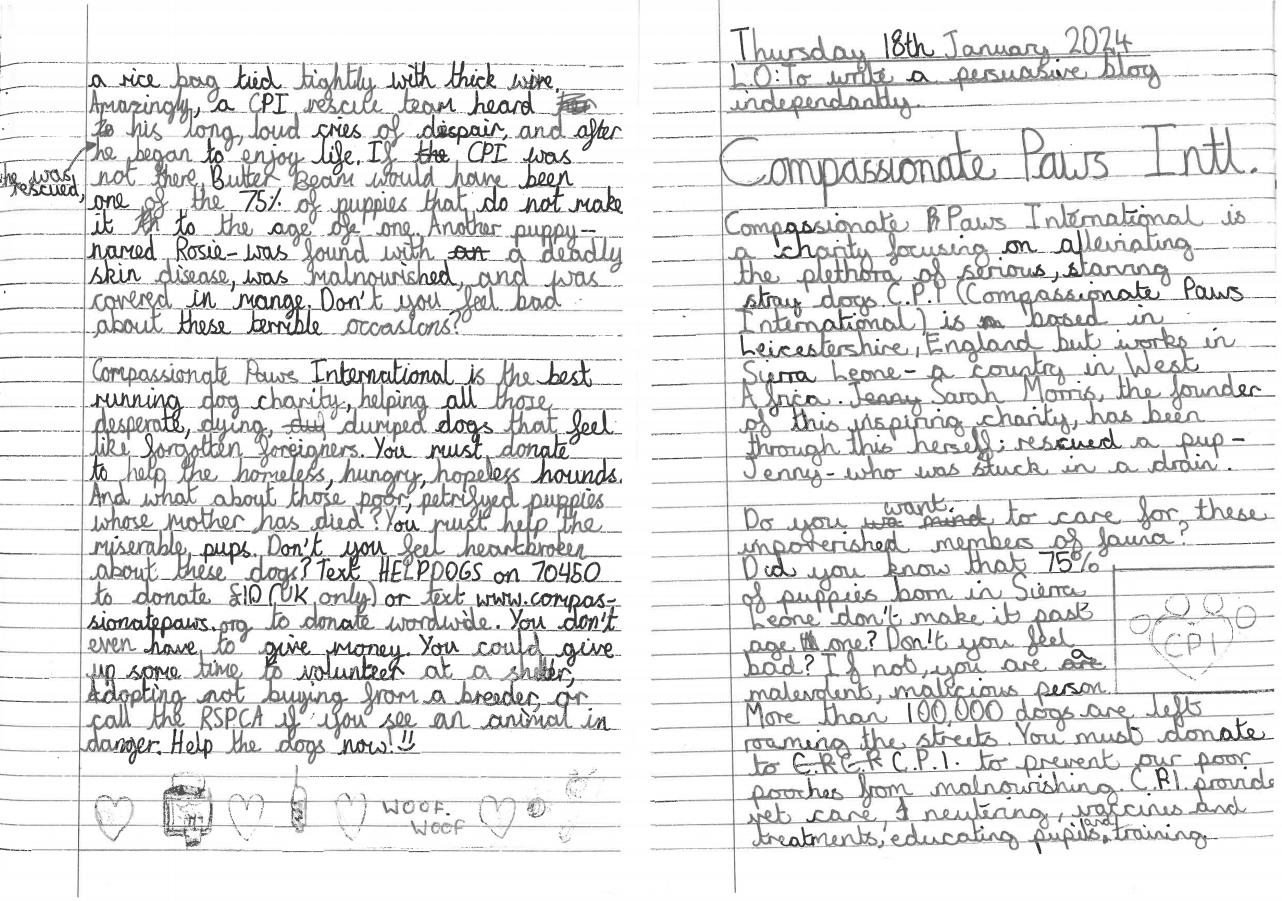 a rice bag tied tightly with thick wire.
Amazingly, a CPI rescue team heard
his long, loud cries of despair, and after
he was rescued,
he began to enjoy life. If the CPI was
not there Butter Beam would have been
one of the 75% of puppies that do not make
it to the age of one. Another puppy –
named Rosie – was found with a deadly
skin disease, was malnourished, and was
covered in mange. Don't you feel bad
about these terrible occasions?
Compassionate Paws International is the best
running dog charity, helping all those
desperate, dying, dumped dogs that feel
like forgotten foreigners. You must donate
to help the homeless, hungry, hopeless hounds.
And what about those poor, petrifyed puppies
whose mother has died? You must help the
miserable pups. Don't you feel heartbroken
about these dogs? Text HELPDOGS on 70450
to donate £10 (UK only) or text www.compas-
sionatepaws.org to donate wordwide. You don't
even have to give money. You could give
up some time to volunteer at a shelter,
Adopting not buying from a breeder, or
call the RSPCA if you see an animal in
danger. Help the dogs now!
WOOF.
WOOF
Thursday 18th January 2024
L.O: To write a persuasive blog
independantly.
Compassionate Paws Intl.
Compassionate Paws International is
a charity focusing on alleviating
the plethora of serious, starving
stray dogs. C.P.I (Compassionate Paws
International) is based in
Leicestershire, England but works in
Sierra Leone – a country in West
Africa. Sarah Morris, the founder
of this inspiring charity, has been
through this herself; rescued a pup –
Jenny – who was stuck in a drain.
Do you want to care for these
impoverished members of fauna?
Did you know that 75%
of puppies born in Sierra
Leone don't make it past
age one? Don't you feel
bad? If not, you are a
malevolent, malicious person.
CPI
More than 100,000 dogs are left
roaming the streets. You must donate
to C.P.I. to prevent our poor
pooches from malnourishing. C.P.I. provide
vet care, neutering, vaccines and
treatments, educating pupils and training